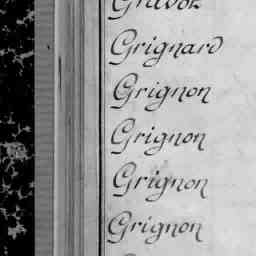 Grignard
Grignon
Grignon
Grignon
Grignon